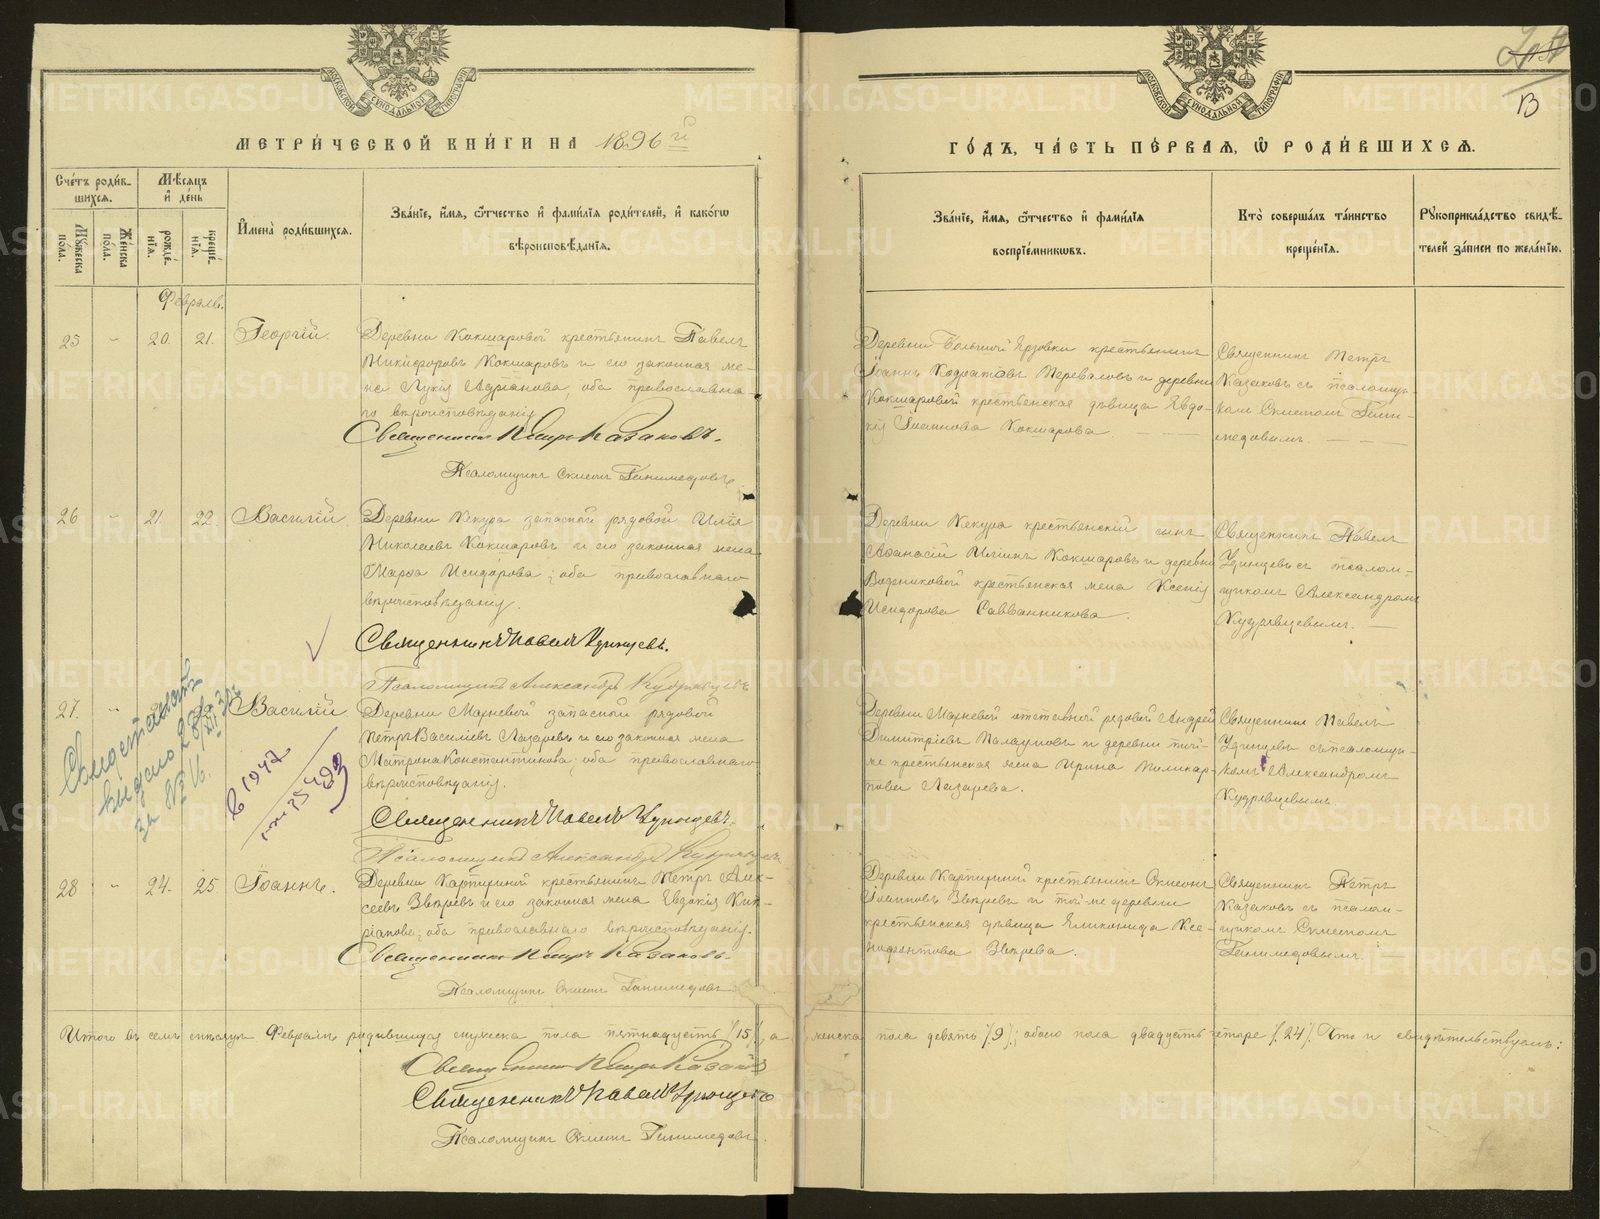 МЕТРИ́ЧЕСКОЙ КНИ́ГИ НА 1896й
ГО́ДЪ, ЧА́СТЬ ПЕ́РВАЯ, Ѽ РОДИ́ВШИХСЯ.
13
Сче́тъ роди́в-
шихся.
Му́жеска
пола.
Же́нска
пола.
Мѣ́сяцъ
и҆ де́нь
рожде́-
нїя.
креще́-
нїя.
И҆мена̀ роди́вшихся.
Зва́нїе, и҆́мя, ѻ҆́тчество и҆ фами́лїя роди́телей, и҆ како́гѡ
вѣроисповѣ́данїя.
Зва́нїе, и҆́мя, ѻ҆́тчество и҆ фами́лїя
воспрїе́мникѡвъ.
Кто̀ соверша́лъ та́инство
креще́нїя.
Рꙋкоприкла́дство свидѣ́-
телей за́писи по жела́нїю.
Февраль.
25 20. 21. Георгій.
Деревни Кокшаровой крестьянинъ Павелъ
Никифоровъ Кокшаровъ и его законная же-
на Лукія Адріанова, оба православна-
го вѣроисповѣданія
Священникъ Петръ Казаковъ.
Псаломщикъ Симеонъ Ганимедовъ.
Деревни Большой Ерзовки крестьянинъ
Іоаннъ Кодратовъ Переваловъ и деревни
Кокшаровой крестьянская дѣвица Евдо-
кія Іоаннова Кокшарова
Священникъ Петръ
Казаковъ съ псаломщи-
комъ Симеономъ Гани-
медовымъ.
26 21. 22. Василій.
Деревни Кекура запасной рядовой Илія
Николаевъ Кокшаровъ и его законная жена
Марѳа Исидорова; оба православнаго
вѣроисповѣданія.
Священникъ Павелъ Удинцевъ.
Псаломщикъ Александръ Кудрявцевъ
Деревни Кекура крестьянскій сынъ
Аѳанасій Иліинъ Кокшаровъ и деревни
Водениковой крестьянская жена Ксенія
Исидорова Савванникова.
Священникъ Павелъ
Удинцевъ съ псалом-
щикомъ Александромъ
Кудрявцевымъ.
27. Василій
Деревни Мариевой запасной рядовой
Петръ Василіевъ Лазаревъ и его законная жена
Матрона Константинова; оба православнаго
вѣроисповѣданія.
Священникъ Павелъ Удинцевъ.
Псаломщикъ Александръ Кудрявцевъ
Деревни Мариевой отставной рядовой Андрей
Димитріевъ и деревни той-
же крестьянская жена Ирина Поликар-
пова Лазарева.
Священникъ Павелъ
Удинцевъ съ псаломщи-
комъ Александромъ
Кудрявцевымъ.
в 1947
28 24. 25 Іоаннъ.
Деревни Картириной крестьянинъ Петръ Алек-
сеевъ Звѣревъ и его законная жена Евдокія Кип-
ріанова; оба православнаго вѣроисповѣданія.
Священникъ Петръ Казаковъ.
Псаломщикъ Симеонъ Ганимедовъ
Деревни Картириной крестьянинъ Симеонъ
Іоанновъ Звѣревъ и той-же деревни
крестьянская дѣвица Еликонида Ксе-
нофонтова Звѣрева.
Священникъ Петръ
Казаковъ съ псалом-
щикомъ Симеономъ
Ганимедовымъ.
Итого въ семъ мѣсяцѣ Февралѣ родившихся мужеска пола пятнадцать /15/, а женска пола девять /9/; обоего пола двадцать четыре /24/. Что и свидѣтельствуемъ:
Священникъ Петръ Казаковъ
Священникъ Павелъ Удинцевъ
Псаломщикъ Симеонъ Ганимедовъ.
METRIKI.GASO-URAL.RU